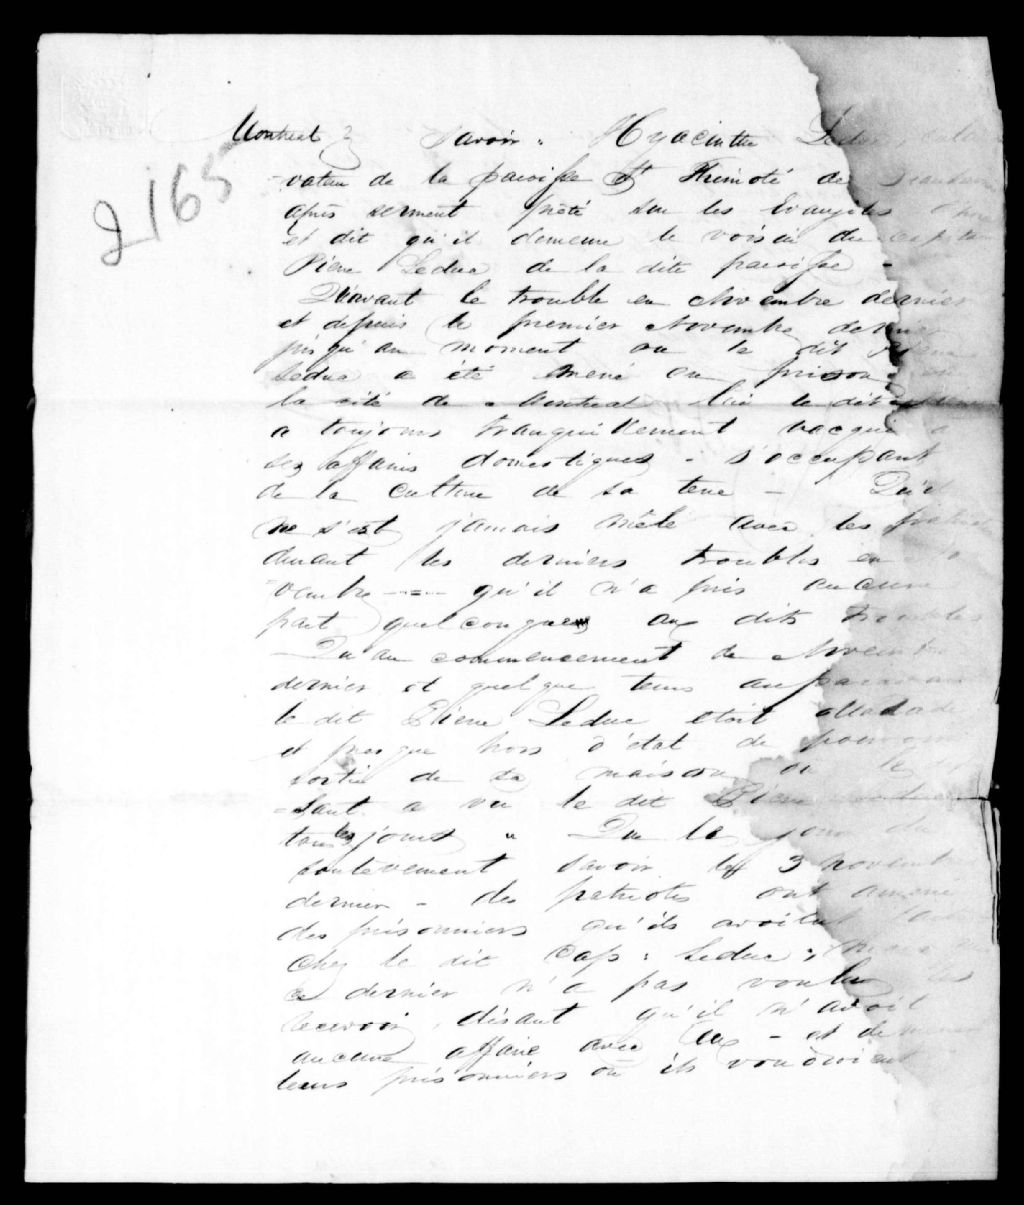 Montreal } Savoir : Hyacinthe Leduc
2165
-vateur de la paroisse St Thimoté de
après serment prêté sur les Evangiles
et dit qu'il demeure le voisin du
Pierre Leduc de la dite paroisse -
Qu'avant le trouble en Novembre dernier
et depuis le premier Novembre dernier
jusqu'au moment ou le dit Pierre
Leduc a été mené en prison en
la cité de Montreal lui le dit
a toujours tranquillement vacqué a
ses affaires domestiques - s'occupant
de la culture de sa terre - Qu'il
ne s'est jamais mêlé avec les
durant les derniers troubles en
-vembre --=-- qu'il n'a pris aucune
part quelconque aux dits troubles
Qu'au commencement de Novembre
dernier et quelque tems auparavant
le dit Pierre Leduc etoit Malade
et presque hors d'état de pouvoir
sortir de sa maison
-sant a vu le dit Pierre Leduc
tous les jours " Que le jour du
soulevement savoir le 3 novembre
dernier - des patriotes ont amené
des prisonniers qu'ils avoient
chez le dit Cap : Leduc ;
ce dernier n'a pas voulu les
recevoir, disant qu'il n'avoit
aucune affaire avec eux - et de mener
leurs prisonniers où ils voudroient